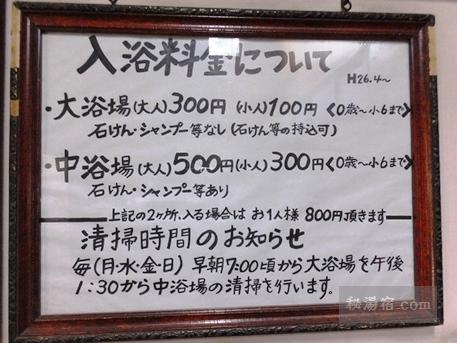 入浴料金について
H26.4〜
・大浴場(大人)300円(小人)100円〈0歳〜小6まで〉
石けん・シャンプー等なし(石けん等の持込可)
・中浴場(大人)500円(小人)300円〈0歳〜小6まで〉
石けん・シャンプー等あり
上記の2ヶ所、入る場合はお1人様800円頂きます
清掃時間のお知らせ
毎(月・水・金・日)早朝7:00頃から大浴場を午後
1:30から中浴場の清掃を行います。
秘湯宿.com